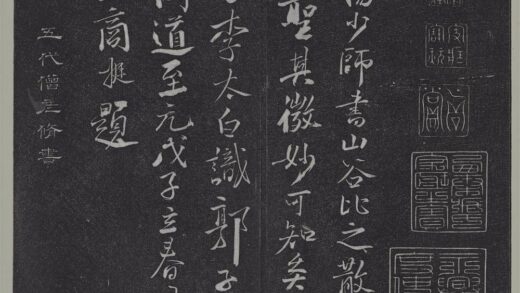 少師書山谷比之散
聖其微妙可知矣
李太白識郭子
道至元戊子立春
商挺題
五代僧彥脩書